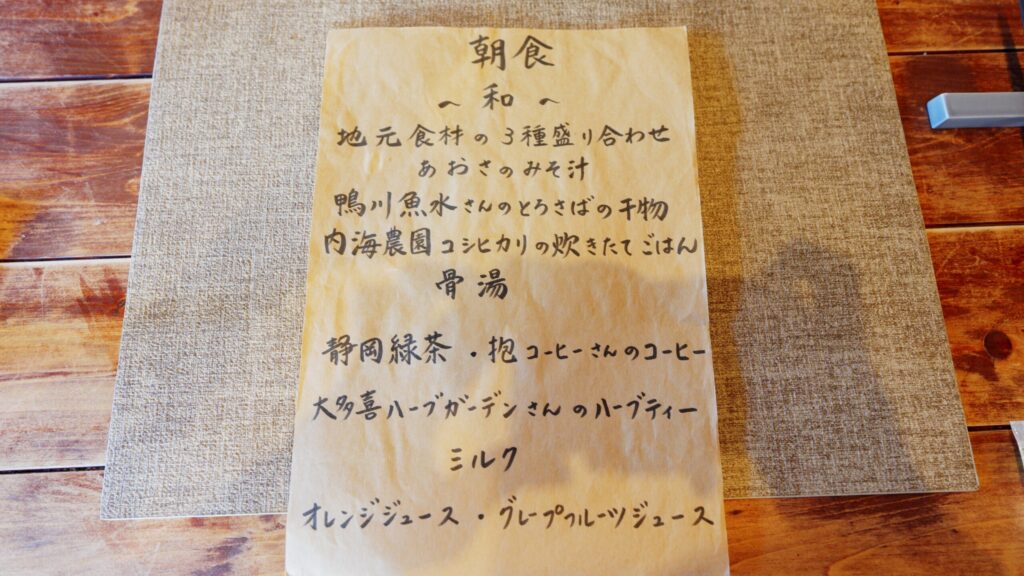 朝食
～ 和 ～
地元食材の3種盛り合わせ
あおさのみそ汁
鴨川魚水さんのとろさばの干物
内海農園コシヒカリの炊きたてごはん
骨湯
静岡緑茶・抱コーヒーさんのコーヒー
大多喜ハーブガーデンさんのハーブティー
ミルク
オレンジジュース・グレープフルーツジュース